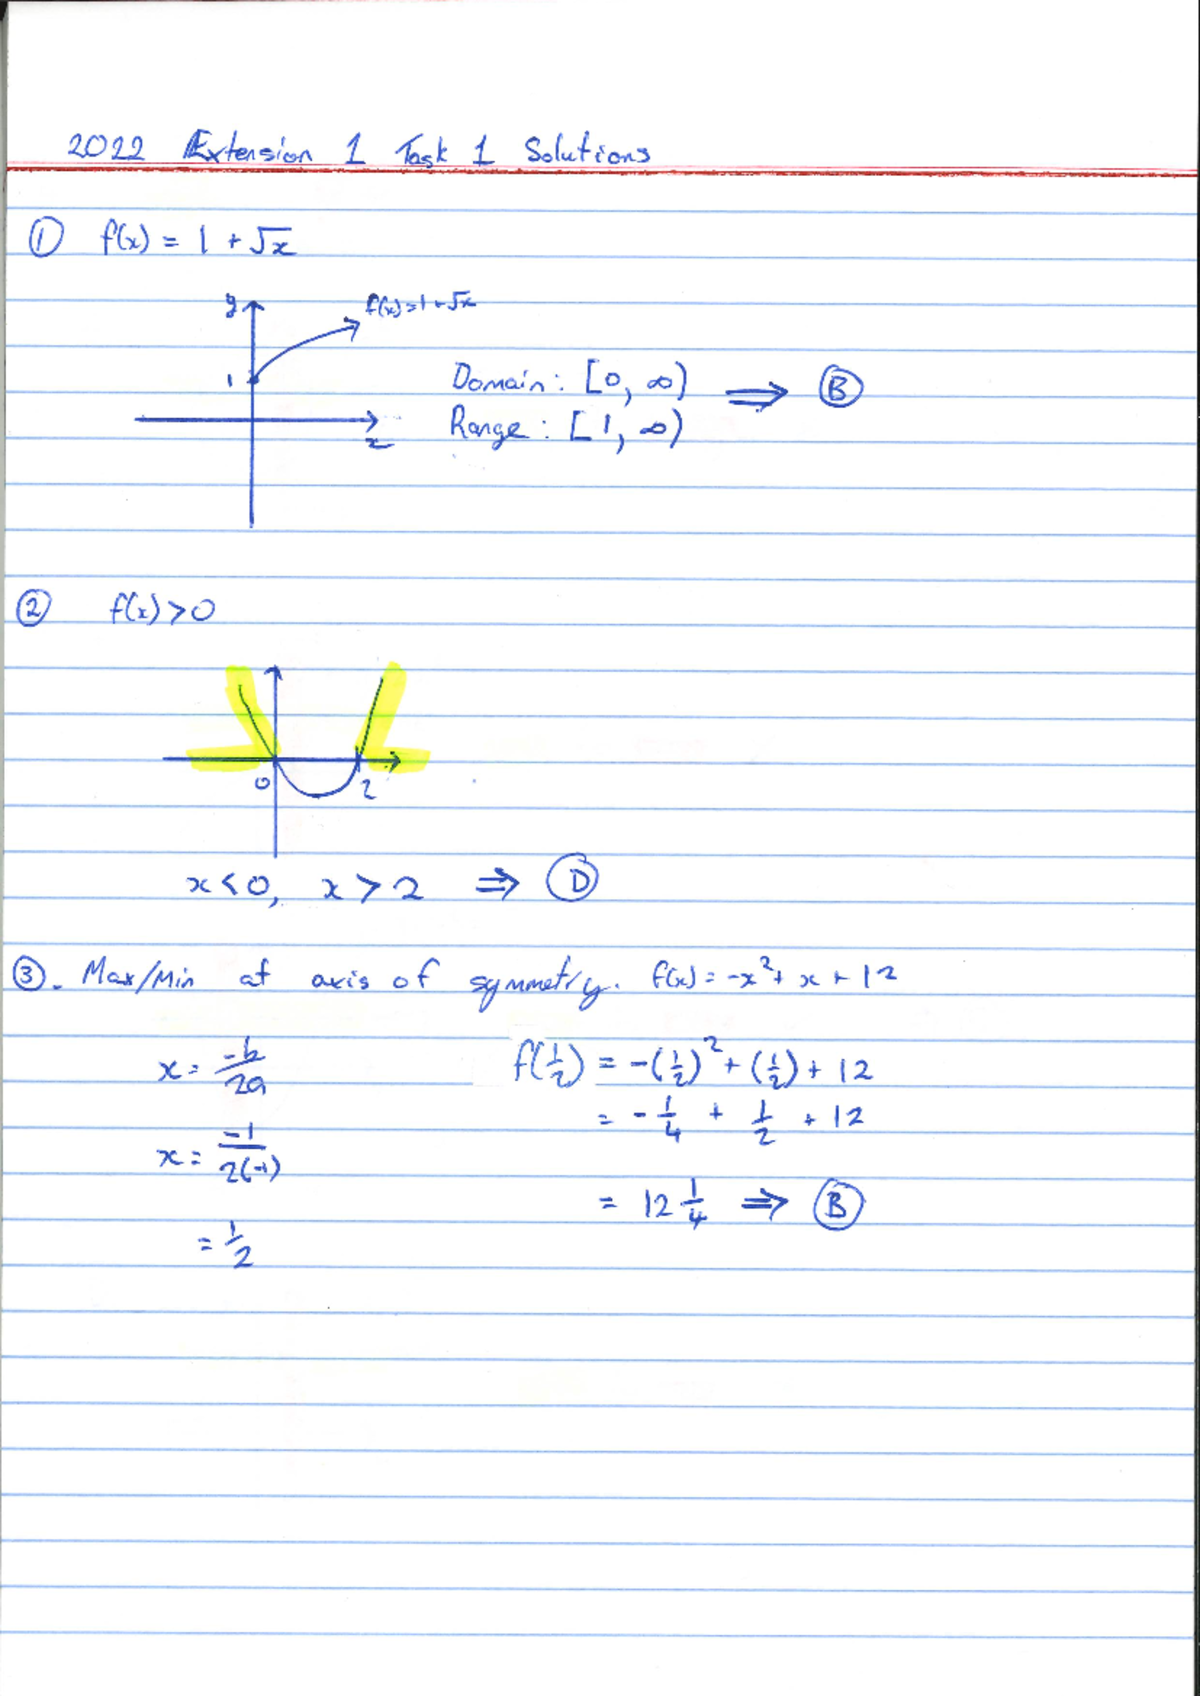 2022 Extension 1 Task 1 Solutions
① f(x) = 1 + √x
y
f(x)=1+√x
1
x
Domain: [0, ∞)
Range: [1, ∞)
⇒ Ⓑ
② f(x) > 0
0 2
x < 0, x > 2 ⇒ Ⓓ
③. Max/Min at axis of symmetry. f(x) = -x² + x + 12
x = -b/2a
x = -1/2(-1)
= 1/2
f(1/2) = -(1/2)² + (1/2) + 12
= -1/4 + 1/2 + 12
= 12 1/4 ⇒ Ⓑ